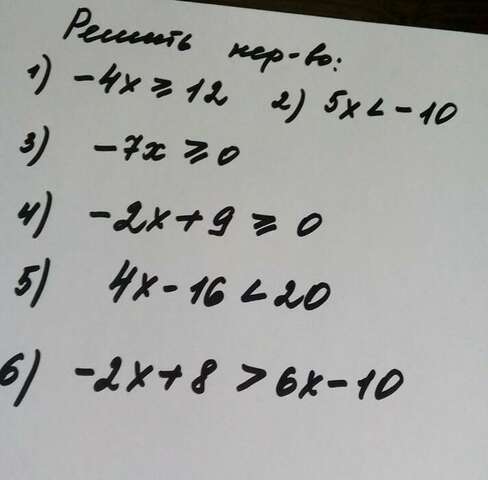 Решить нер-во:
1) -4x ⩾ 12 2) 5x < -10
3) -7x ⩾ 0
4) -2x + 9 ⩾ 0
5) 4x - 16 < 20
6) -2x + 8 > 6x - 10